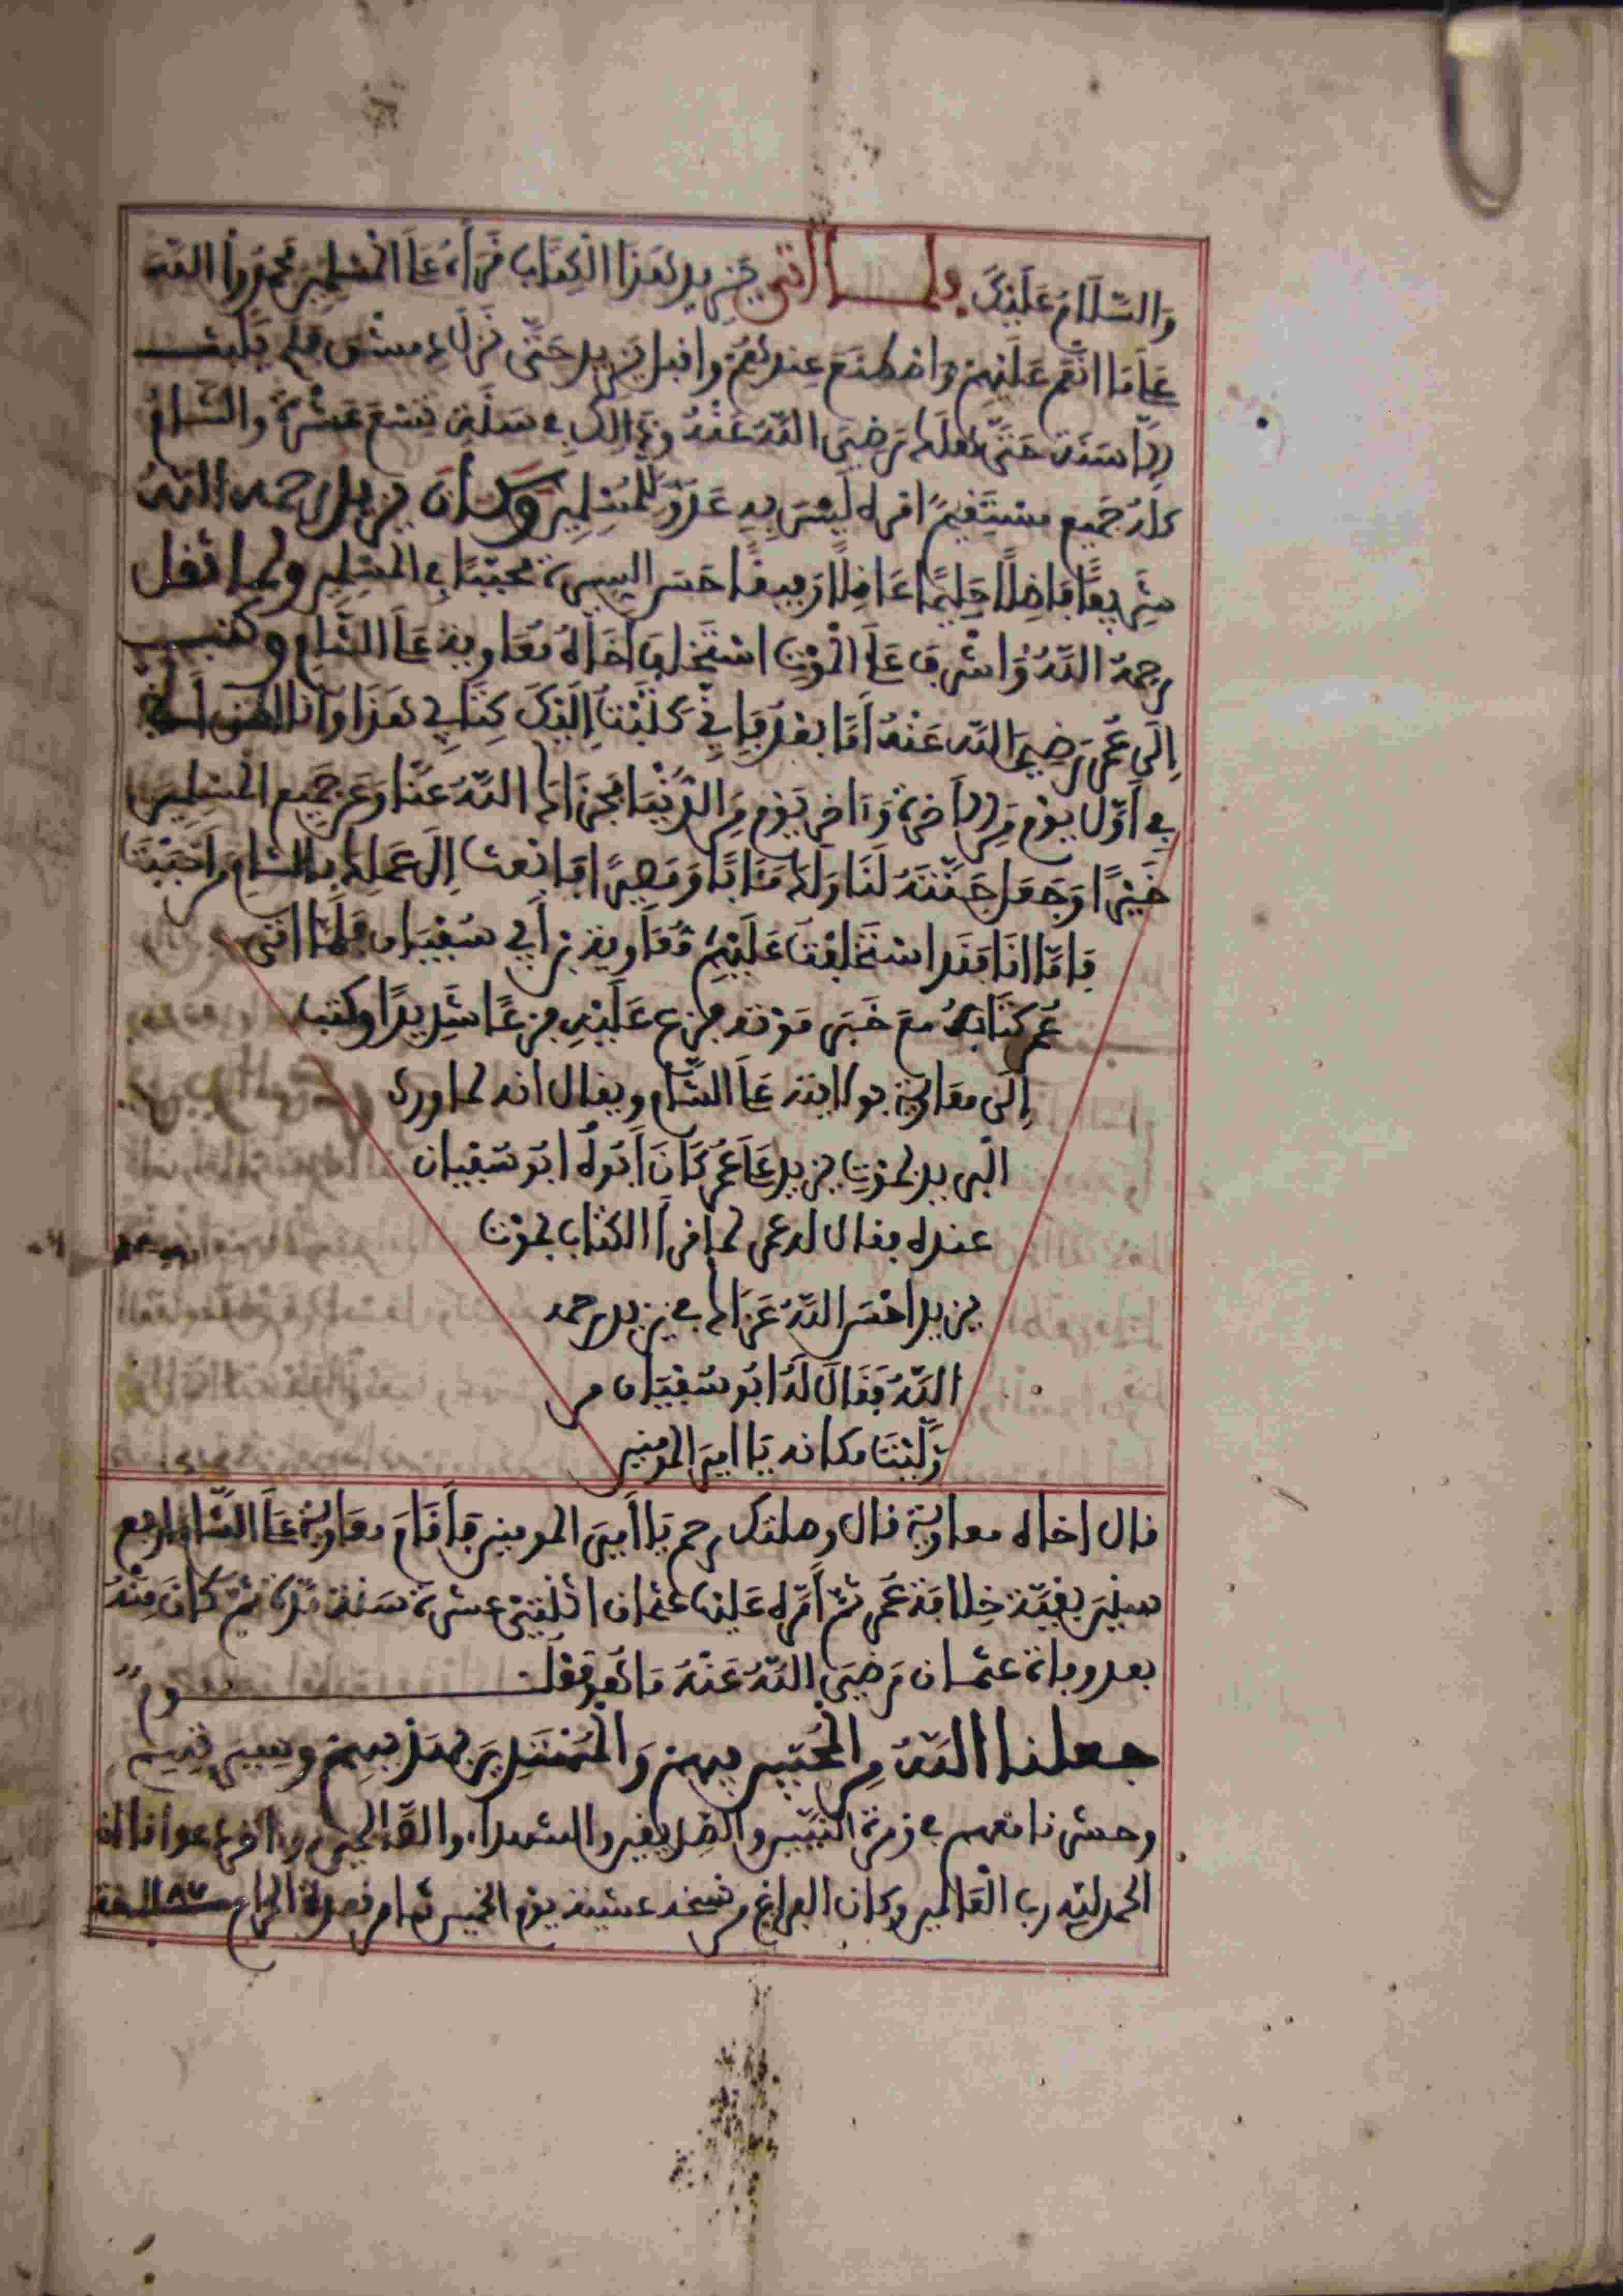 والسَّلَامُ عَلَيْكَ ولمــا اتى يزيد هَذَا الْكِتَابُ قَرَأهُ عَلَى الْمُسْلِمِينَ فحمدوا الله
عَلَى مَا انْعَم عَلَيْهِمْ واصْطنَعَ عِنْدَهُمْ واقبل يزيد حَتَّى نَزلَ دمشق فلم يلبث
إلا سنة حَتَّى هلك رَضِيَ اللهُ عَنْهُ وذالك في سنة تِسْعَ عَشْرَةَ والشام
كله جميع مستقيم امره ليس به عَدُوّ للمسلمين وكان يزيد رحمه الله
شريفًا فاضِلًا حَلِيمًا عَاقِلًا رَفِيقًا حسن السيرة محببًا في المسلمين ولما ثقل
رحمهُ اللهُ وَاشرف على الموت استخلف اخَاهُ مُعَاوية على الشام وكتب
إِلَى عُمر رَضِيَ الله عَنْهُ أَمَّا بعد فَإِنّي كَتَبْتُ إِلَيْكَ كِتَابِي هَذَا وَأنا اظن أني
في أَوَّل يوم من الآخرة وَءَاخر يَوْم من الدُّنْيَا فجزاك اللهُ عَنَّا وَعن جَمِيع المسلمين
خَيْرًا وَجَعَل جَنَّتَهُ لَنَا وَلَكَ مَئَابًا وَمَصِيرًا فابْعث إِلَى عَمَلِكَ بالشام من احْبَبْتَ
فامّا انَا فقد استخلفت عَلَيْهِمْ مُعَاوية بن أبي سفيان فلما اتى
عُمر كتابه مع خَبَر موته جزع عَلَيْهِ جزعًا شديدًا وكتب
إِلَى معاوية بولايته على الشَّام ويقال انه لما ورد
البريد بموت يزيد على عُمر كَانَ ابُوهُ ابُو سُفيان
عنده فقال له عمر لما قرأ الكتاب بموت
يزيد احْسَن اللهُ عَزَاك في يزيد رحمه
اللهُ فقَالَ لَهُ ابُو سُفْيَان من
وَلَّيْتَ مكانه يَا امِيرَ المومنين
قال اخاه معاوية قال وصلتك رحم يَا أَمِيرَ المومنين فأقَامَ معَاوية على الشام اربع
سنين بقيَّة خِلافة عُمر ثمّ أقرّه عَلَيْها عثمان اثنتي عشرة سنة ثُمَّ كَانَ مِنْهُ
بعد وفاة عثمان رَضِيَ اللهُ عَنْهُ مَا هو معلــوم
جعلنا اللهُ من المحبين فيهم وَالْمُهْتَدِينَ بهديهم
وحشرنا معهم في زمرة النبيين والصديقين والشهداء والصالحين وءاخر دعوانا ان
الحمد لله رب الْعَالمين وكان الفراغ من نسخه عشية يوم الخميس